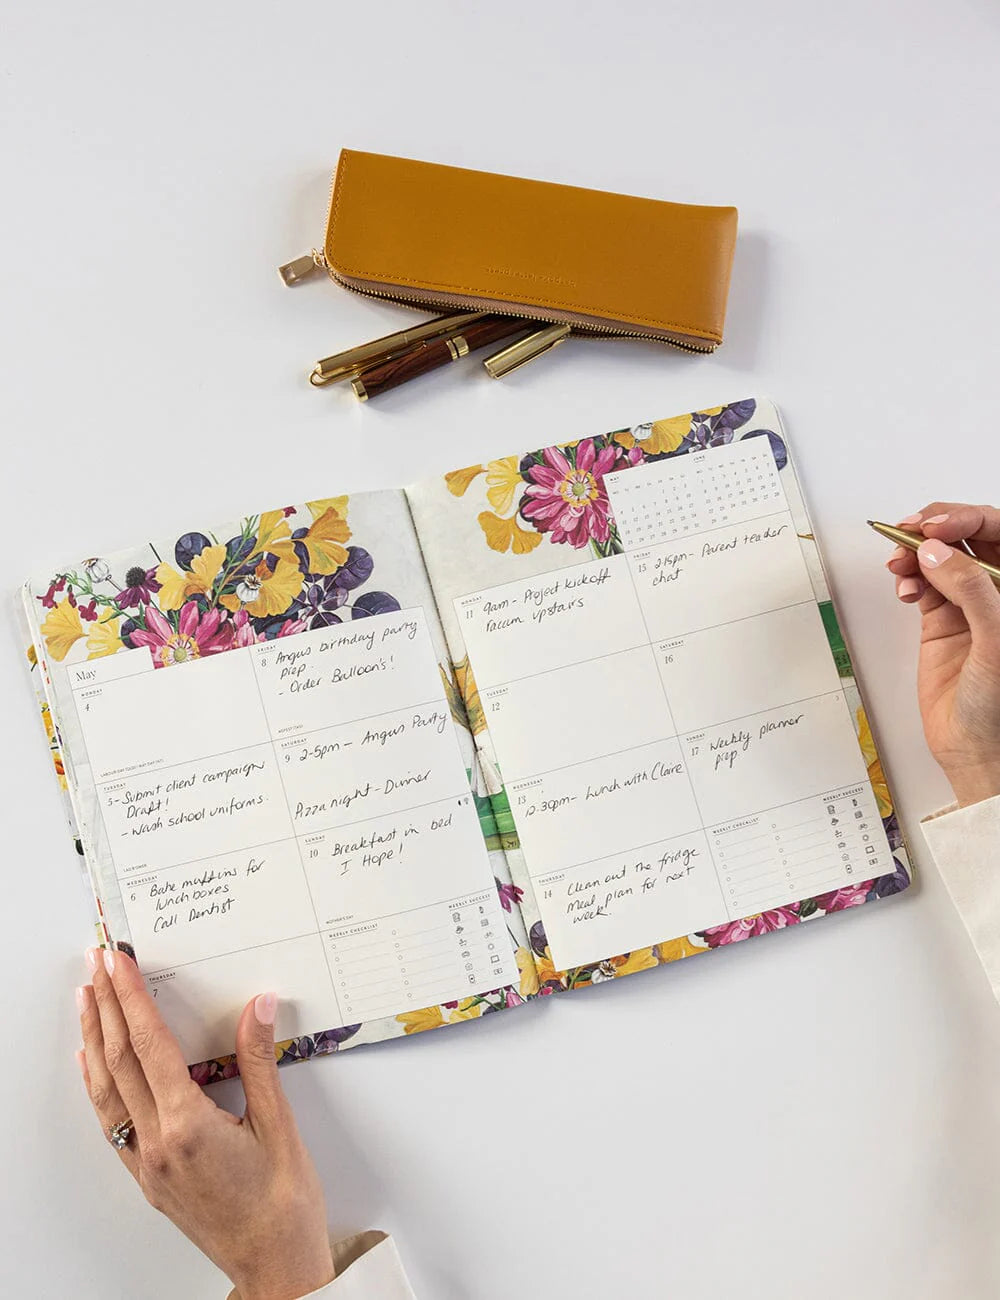 May
MONDAY
4
LABOUR DAY (QLD) MAY DAY (NT)
TUESDAY
5 - Submit client campaign
Draft!
- Wash school uniforms.
WEDNESDAY
6 Bake muffins for
lunch boxes
Call Dentist
THURSDAY
7
FRIDAY
8 Angus birthday party
prep.
- Order Balloon's!
AGFEST (TAS)
SATURDAY
9 2-5pm - Angus Party
Pizza night - Dinner
SUNDAY
10 Breakfast in bed
I Hope!
MOTHER'S DAY
WEEKLY CHECKLIST
WEEKLY SUCCESS
MAY
JUNE
MONDAY
11 9am - Project kickoff
racum upstairs
TUESDAY
12
WEDNESDAY
13
12:30pm - Lunch with Claire
THURSDAY
14 Clean out the fridge
Meal plan for next
week.
FRIDAY
15 2:15pm - Parent teacher
chat
16
SUNDAY
17 Weekly planner
prep.
WEEKLY CHECKLIST
WEEKLY SUCCESS